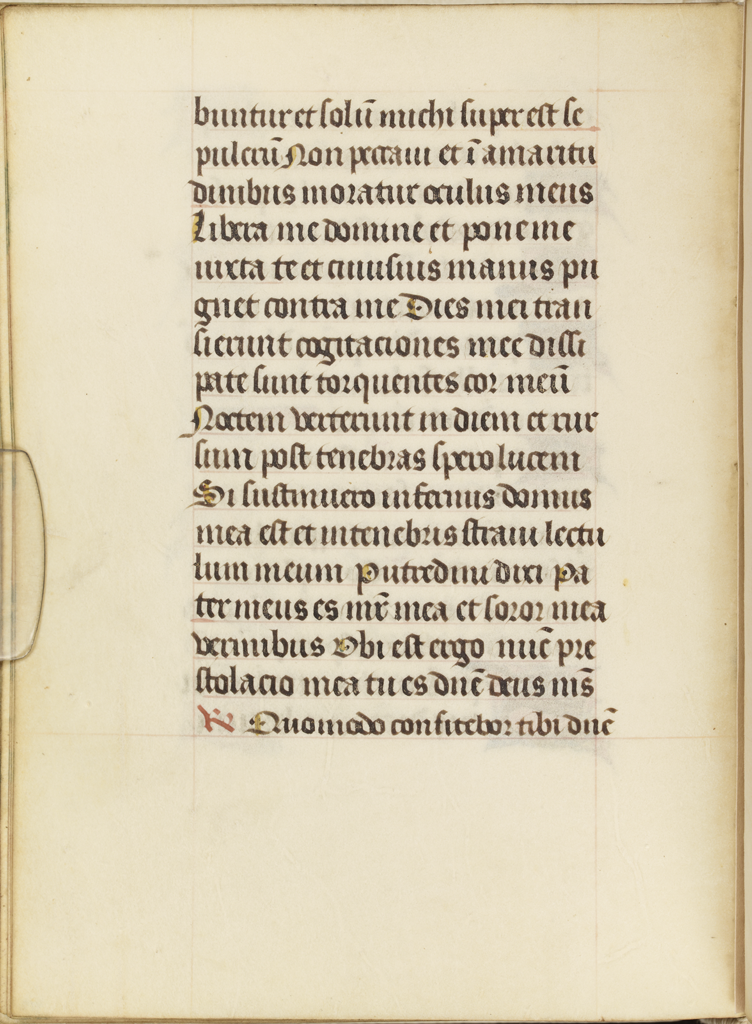 buntur et solū michi super est se
pulcrū Non peccaui et ī amaritu
dinibus moratur oculus meus
Libera me domine et pone me
iuxta te et cuiusuis manus pu
gnet contra me Dies mei tran
sierunt cogitaciones mee dissi
pate sunt torquentes cor meū
Noctem verterunt in diem et rur
sum post tenebras spero lucem
Si sustinuero infernus domus
mea est et in tenebris straui lectu
lum meum Putredini dixi Pa
ter meus es mr̄ mea et soror mea
vermibus Vbi est ergo nūc pre
stolacio mea tu es dnē deus ms̄
R Quomodo confitebor tibi dnē